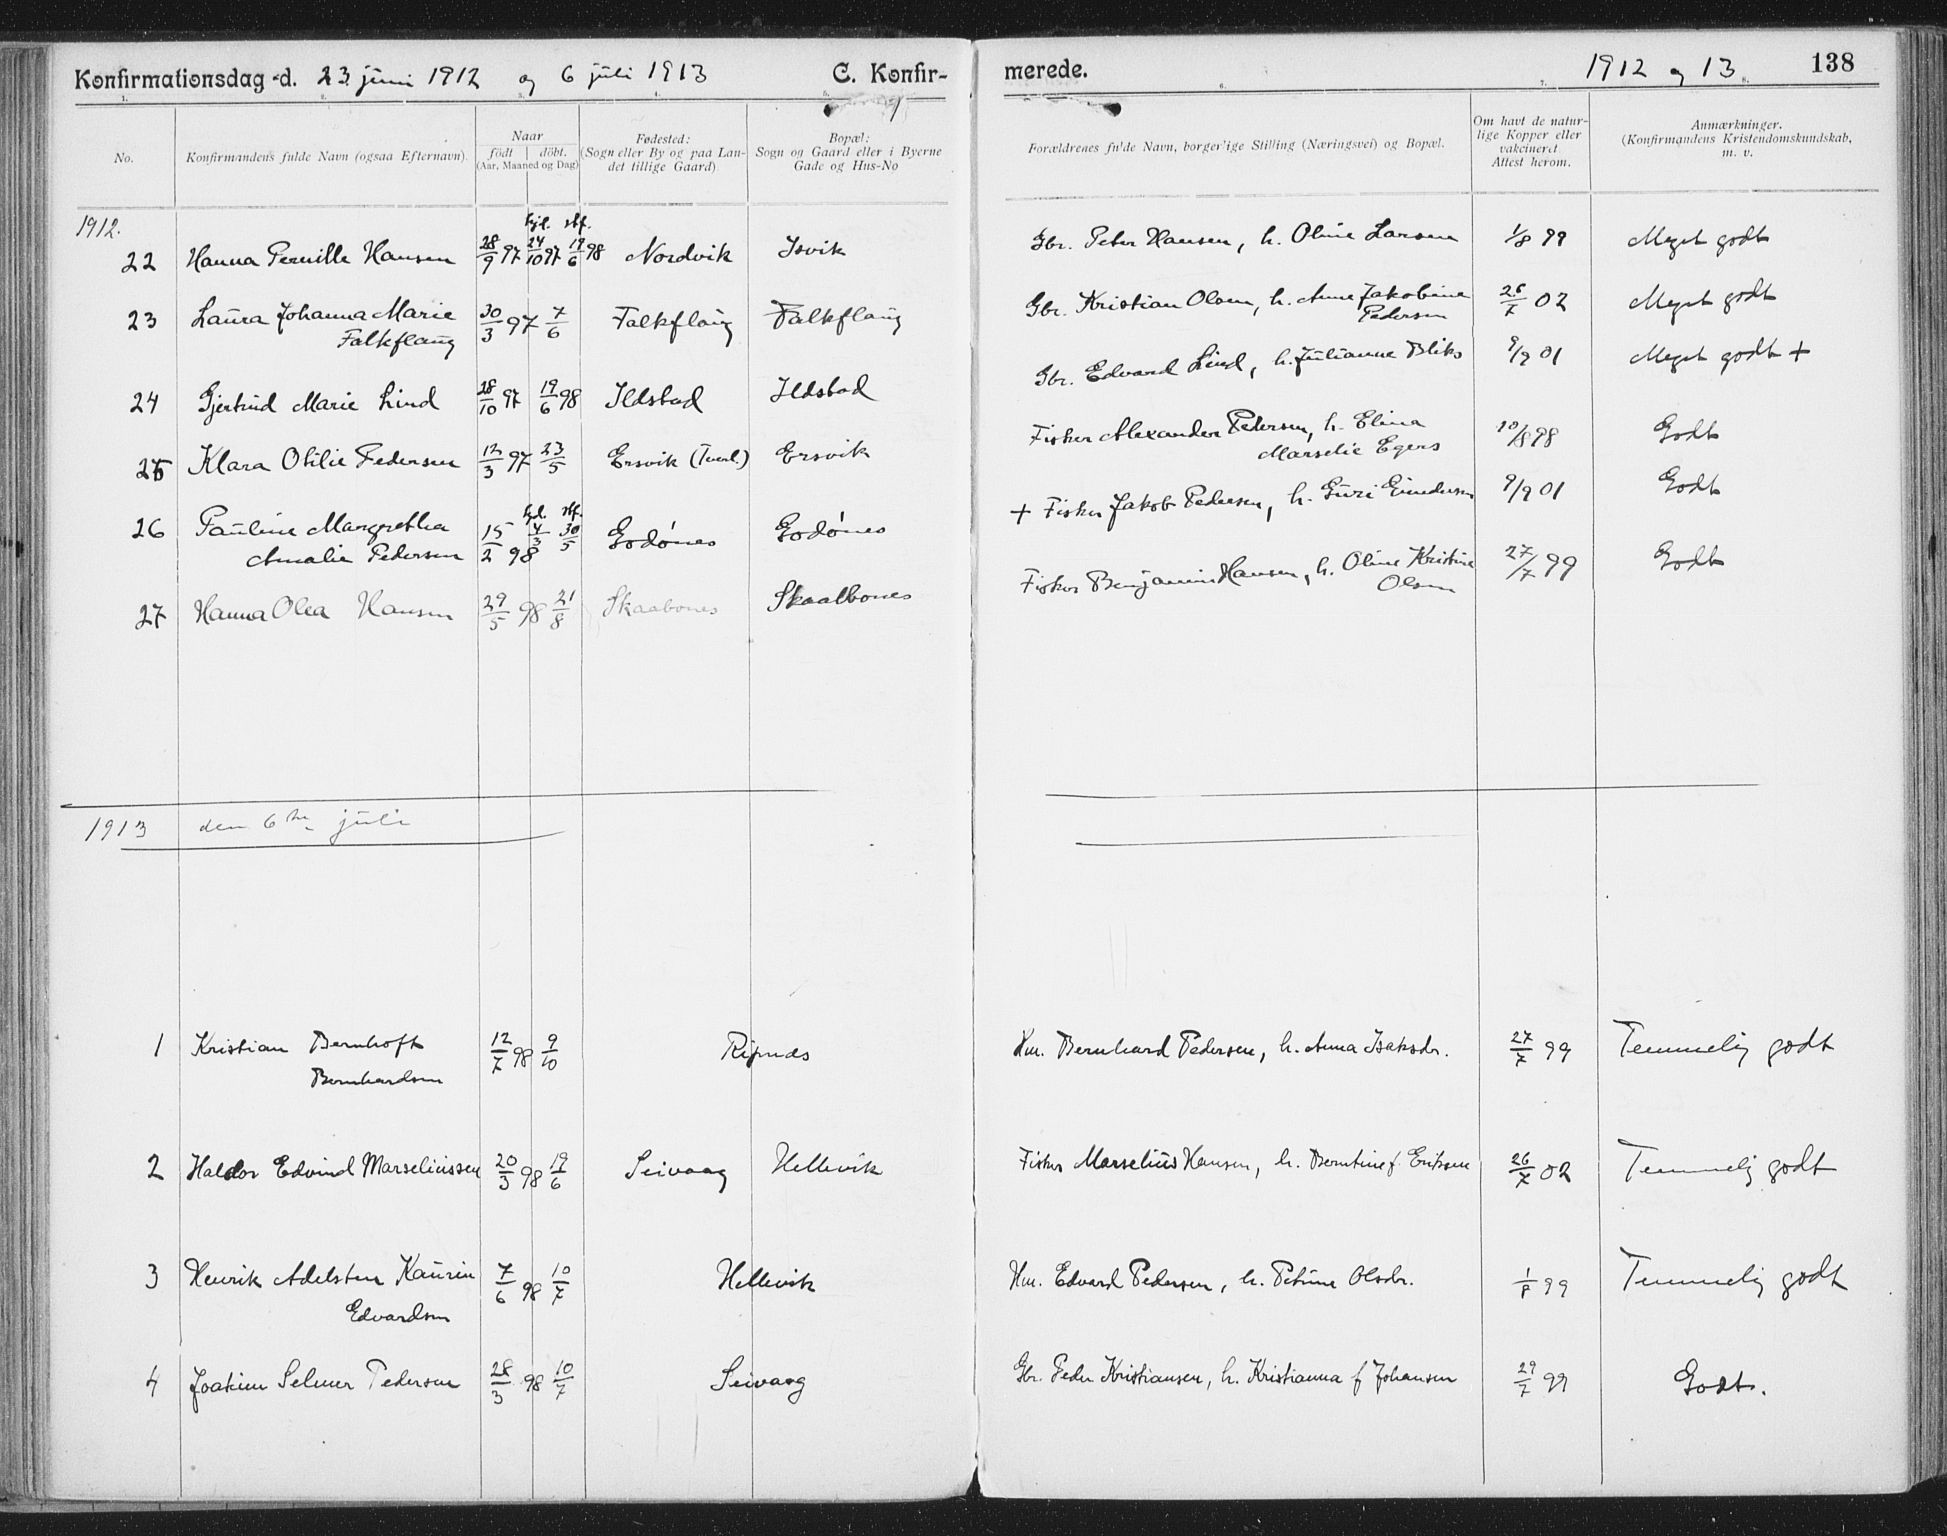 Konfirmationsdag d. 23 juni 1912 og 6 juli 1913 C. Konfir-
merede. 1912 og 13 138
1. 2. 3. 4. 5. 6. 7. 8.
No.
Konfirmandens fulde Navn (ogsaa Efternavn).
Naar
födt döbt.
(Aar, Maaned og Dag)
Fødested:
(Sogn eller By og paa Lan-
det tillige Gaard)
Bopæl:
Sogn og Gaard eller i Byerne
Gade og Hus-No
Forældrenes fulde Navn, borgerlige Stilling (Næringsvei) og Bopæl.
Om havt de natur-
lige Kopper eller
vakcineret.
Attest herom.
Anmærkninger.
(Konfirmandens Kristendomskundskab,
m. v.
1912.
hjd. stf.
22 Hanna Pernille Hansen 28/9 97 24/10 97 19/6 98 Nordvik Isvik Gbr. Peter Hansen, h. Oline Larsen 1/8 99 Meget godt
23 Laura Johanna Marie 30/3 97 7/6 Falkflaug Falkflaug Gbr. Kristian Olsen, h. Anne Jakobine 26/7 02 Meget godt
Falkflaug Pedersen
24 Gjertrud Marie Lind 28/10 97 19/6 98 Ildstad Ildstad Gbr. Edvard Lind, h. Julianne Bliks 9/9 01 Meget godt +
25 Klara Otilie Pedersen 12/3 97 23/5 Ersvik (Tverl.) Ersvik Fisker Alexander Pedersen, h. Elina 10/8 98 Godt
Marselie Egers
hjd. stf.
26 Pauline Margretha 15/2 98 4/3 30/5 Godønes Godønes + Fisker Jakob Pedersen, h. Guri Enndersen 9/9 01 Godt
Amalie Pedersen
27 Hanna Olea Hansen 29/5 98 21/8 Skaabones Skaalbones Fisker Benjamin Hansen, h. Oline Kristine 27/7 99 Godt
Olsen
1913 den 6te juli
1 Kristian Bernhoft 12/7 98 9/10 Ripnes Hm. Bernhard Pedersen, h. Anna Isaksdr. 27/7 99 Temmelig godt
Bernhardsen
2 Haldor Edvind Marseliussen 20/3 98 19/6 Seivaag Hellevik Fisker Marselius Hansen, h. Berntine f. Eriksen 26/7 02 Temmelig godt
3 Henrik Adelsten Kaurin 7/6 98 10/7 Hellevik Hm. Edvard Pedersen, h. Petrine Olsdr. 1/8 99 Temmelig godt
Edvardsen
4 Joakim Selmer Pedersen 28/3 98 10/7 Seivaag Gbr. Peder Kristiansen, h. Kristianna f Johansen 29/7 99 Godt.